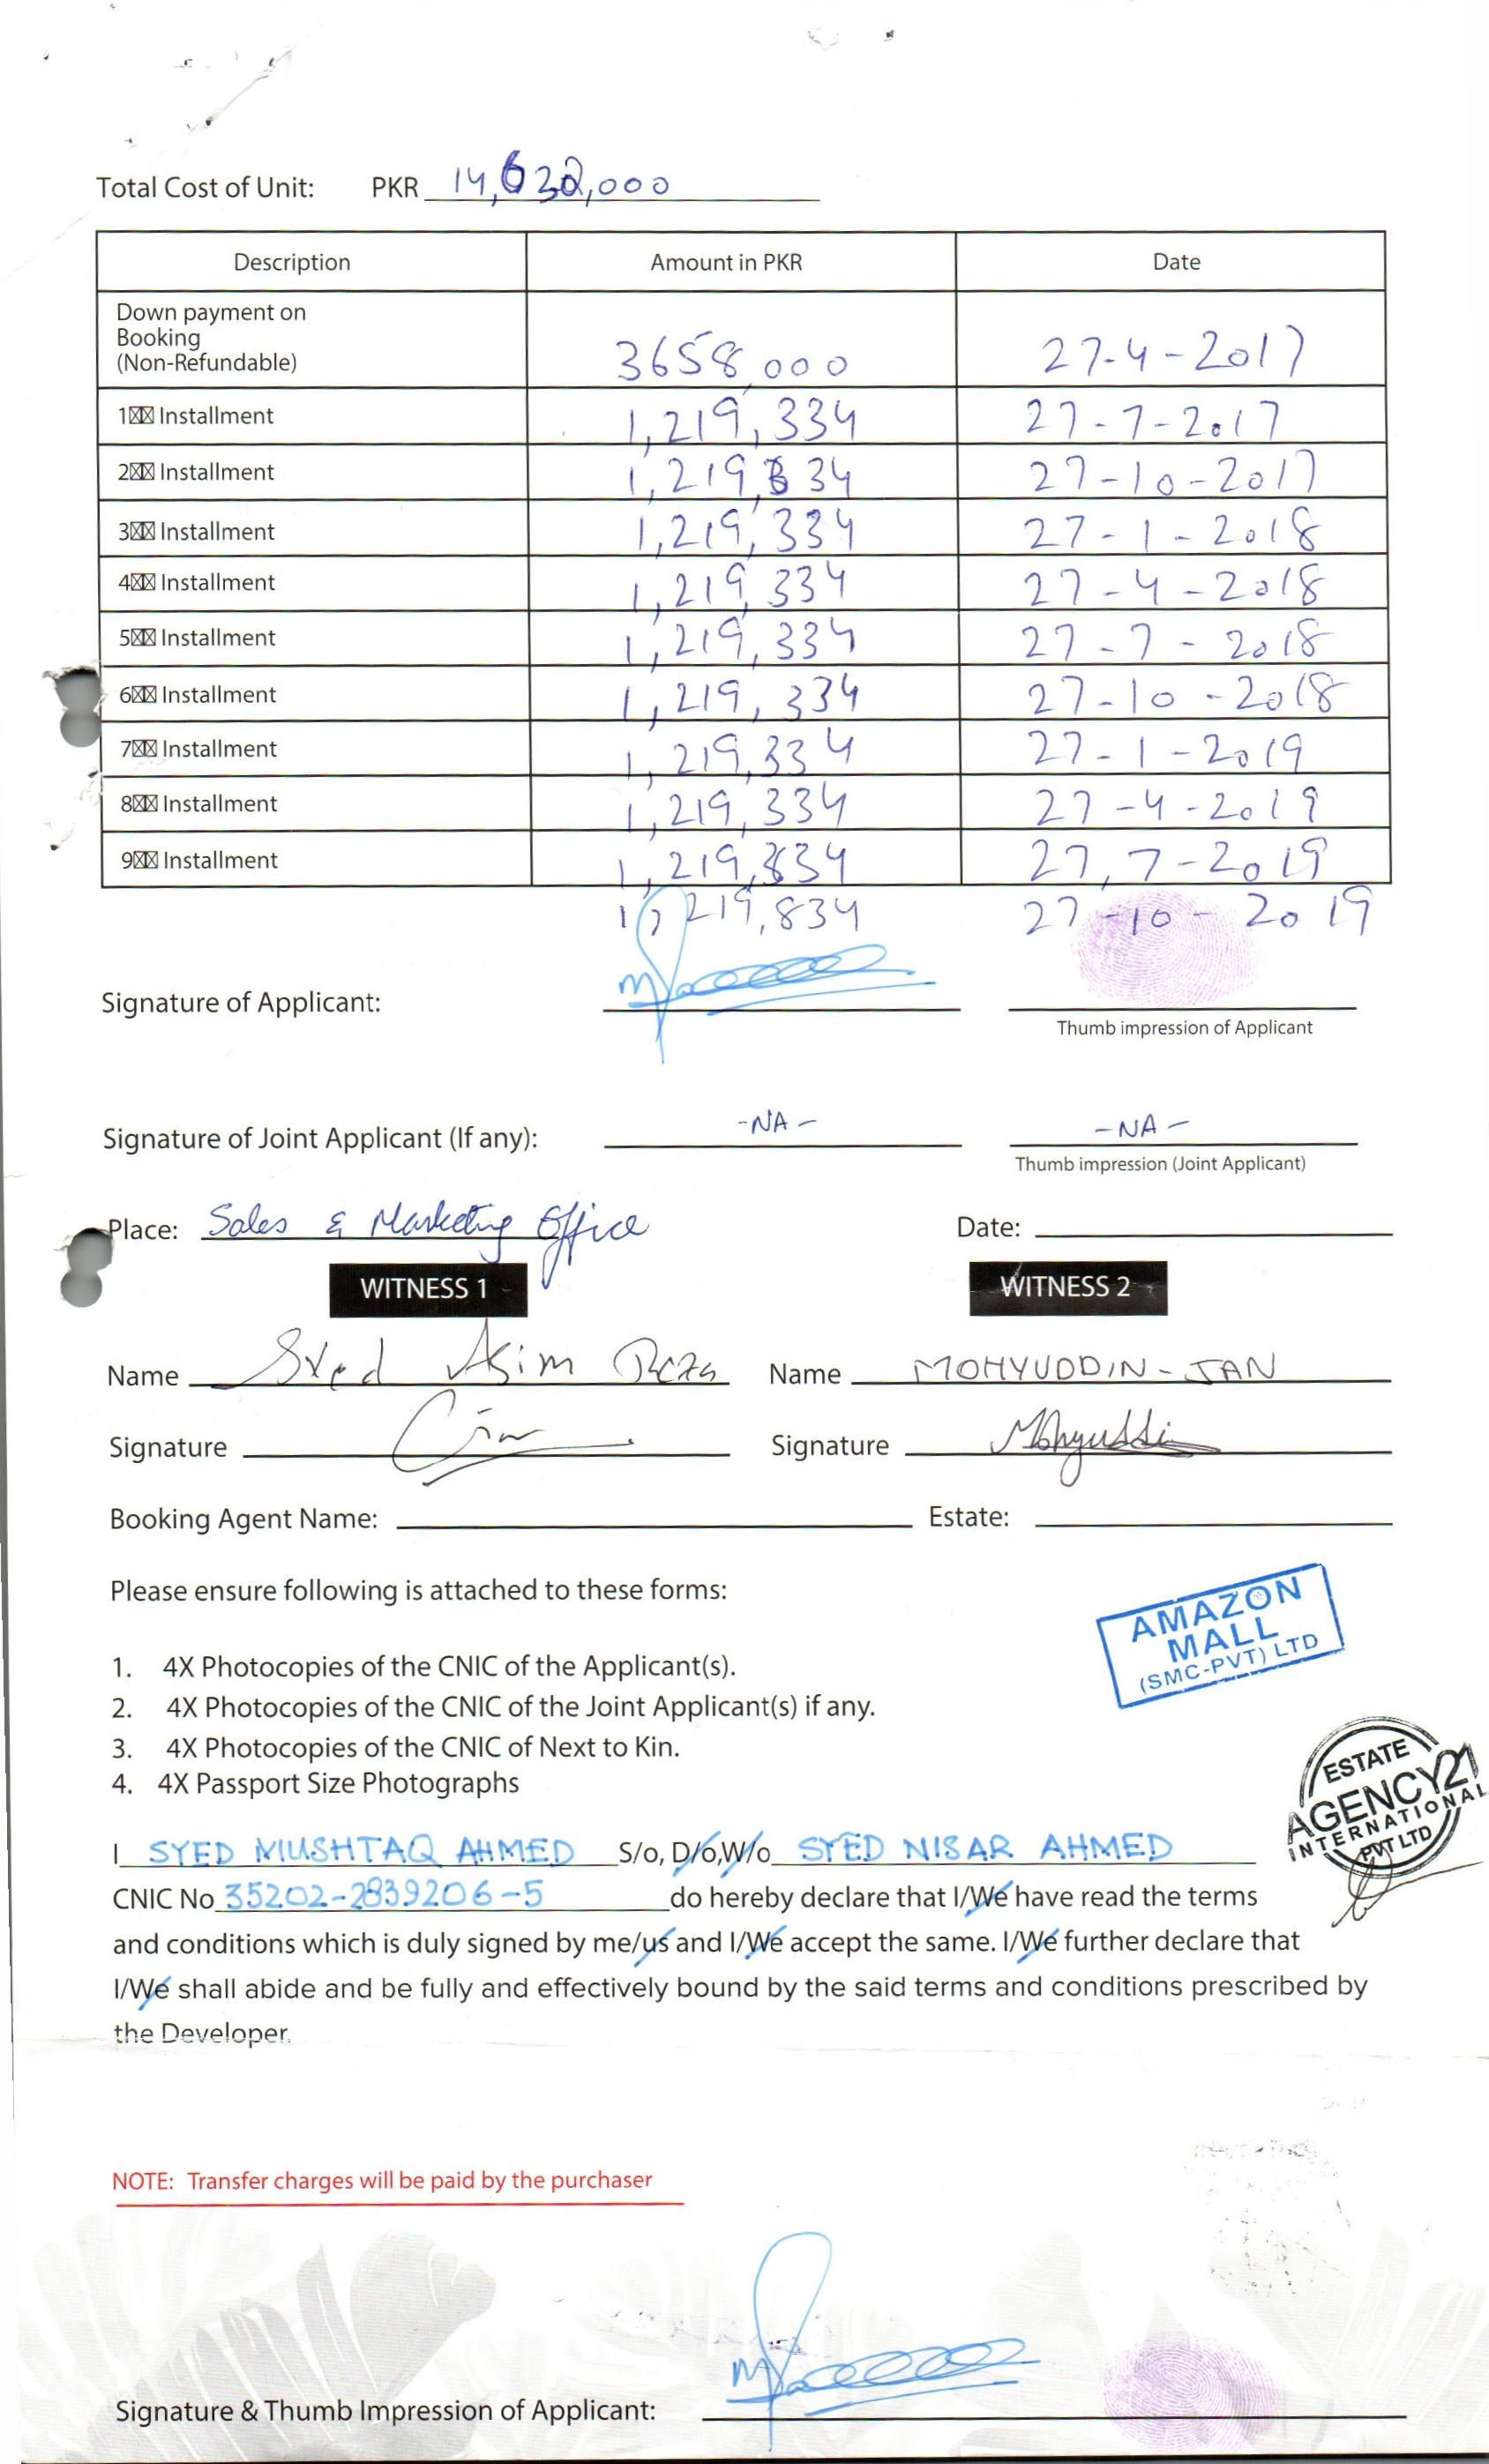 Total Cost of Unit: PKR 14,632,000
Description Amount in PKR Date
Down payment on
Booking
(Non-Refundable) 3658,000 27-4-2017
1 Installment 1,219,334 27-7-2017
2 Installment 1,219,334 27-10-2017
3 Installment 1,219,334 27-1-2018
4 Installment 1,219,334 27-4-2018
5 Installment 1,219,334 27-7-2018
6 Installment 1,219,334 27-10-2018
7 Installment 1,219,334 27-1-2019
8 Installment 1,219,334 27-4-2019
9 Installment 1,219,334 27,7-2019
1,219,834 27-10-2019
Signature of Applicant:
Thumb impression of Applicant
Signature of Joint Applicant (If any): -NA- -NA-
Thumb impression (Joint Applicant)
Place: Sales & Marketing Office Date:
WITNESS 1 WITNESS 2
Name Syed Asim Reza Name MOHYUDDIN-JAN
Signature Signature Mohyuddin
Booking Agent Name: Estate:
Please ensure following is attached to these forms:
AMAZON
MALL
(SMC-PVT) LTD
1. 4X Photocopies of the CNIC of the Applicant(s).
2. 4X Photocopies of the CNIC of the Joint Applicant(s) if any.
3. 4X Photocopies of the CNIC of Next to Kin.
4. 4X Passport Size Photographs
ESTATE
AGENCY21
INTERNATIONAL
PVT LTD
I SYED MUSHTAQ AHMED S/o, D/o,W/o SYED NISAR AHMED
CNIC No 35202-2839206-5 do hereby declare that I/We have read the terms
and conditions which is duly signed by me/us and I/We accept the same. I/We further declare that
I/We shall abide and be fully and effectively bound by the said terms and conditions prescribed by
the Developer.
NOTE: Transfer charges will be paid by the purchaser
Signature & Thumb Impression of Applicant: